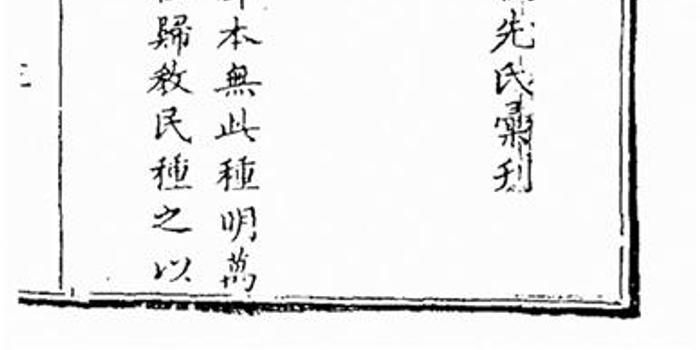 先氏彙刊
本無此種明萬
歸敎民種之以